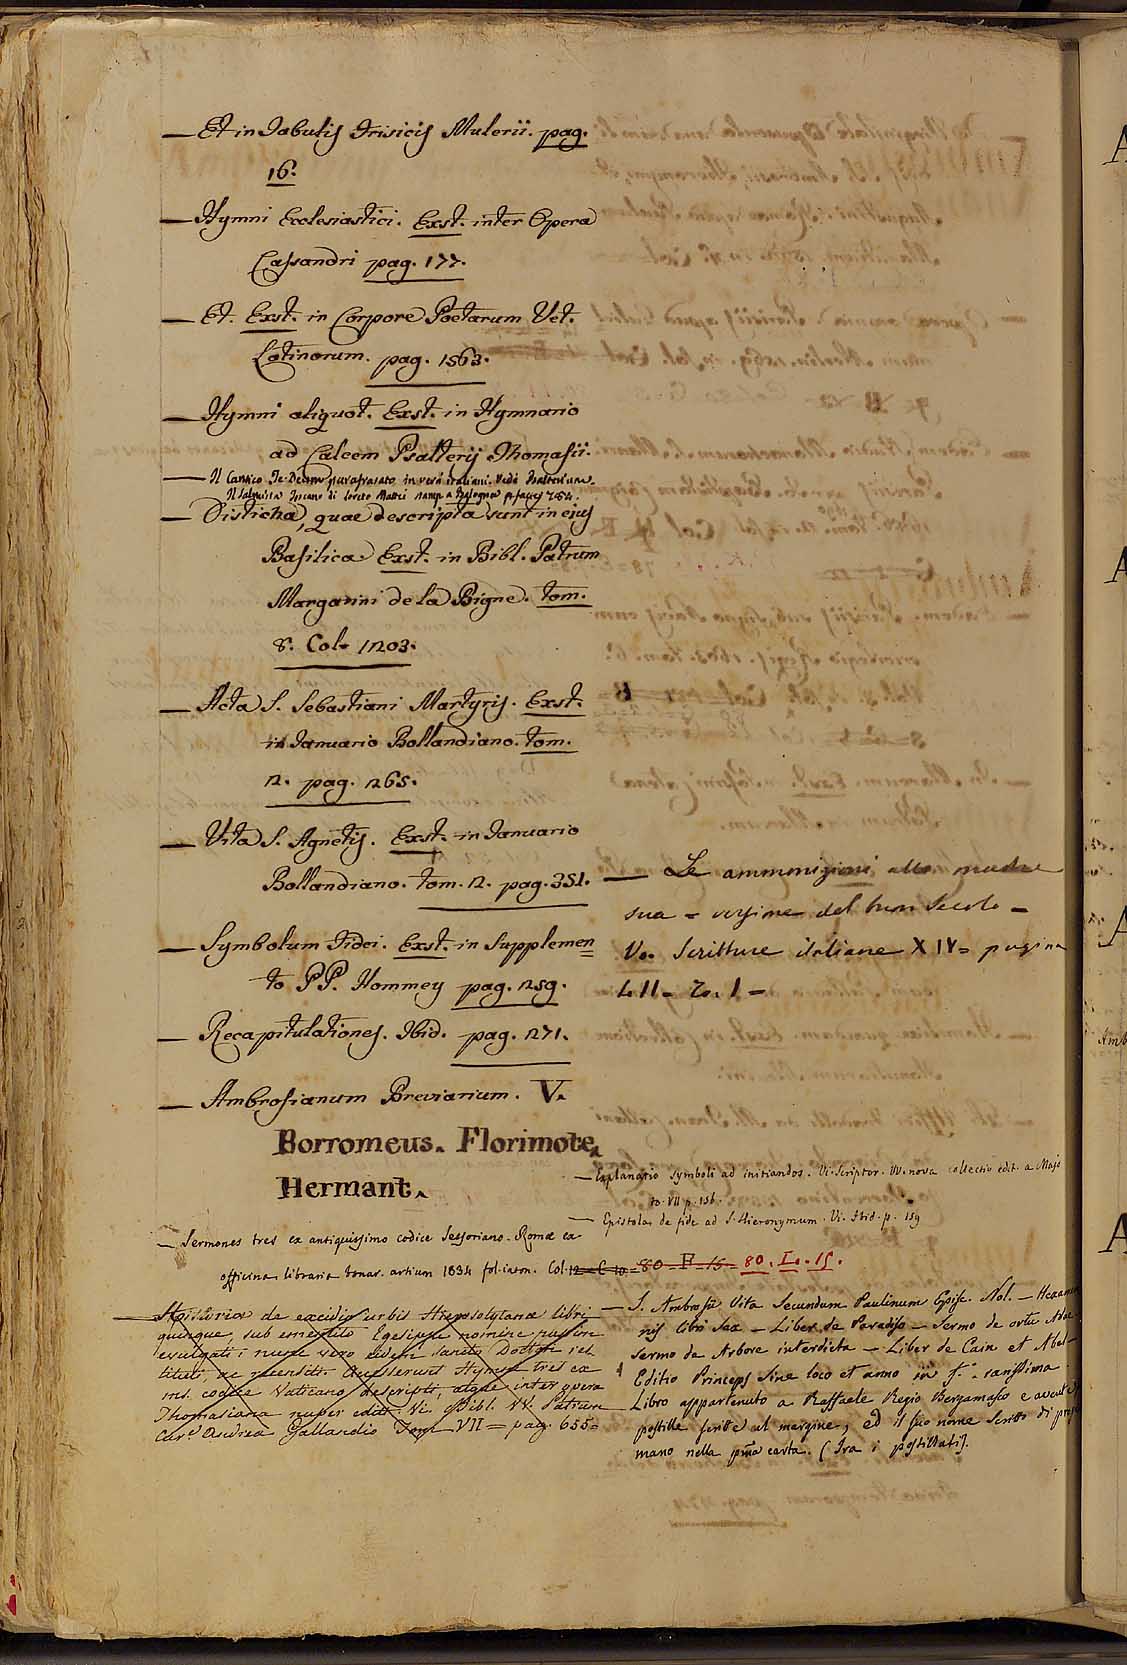 — Et in Tabulis Frisicis Mulerii. pag.
16.
— Hymni Ecclesiastici. Exst. inter Opera
Cassandri pag. 177.
— Et. Exst. in Corpore Poetarum Vet.
Latinorum. pag. 1563.
— Hymni aliquot. Exst. in Hymnario
ad Calcem Psalterij Thomasii.
— Il Cantico Te Deum parafrasato in versi italiani. Vedi Psalterium.
Il Salmista Toscano di Loreto Mattei stamp. a Bologna
— Disticha, quae descripta sunt in ejus
Basilica Exst. in Bibl. Patrum
Margarini de la Bigne. tom.
8. Col. 1203.
— Acta S. Sebastiani Martyris. Exst.
in Januario Bollandiano. tom.
2. pag. 265.
— Vita S. Agnetis. Exst. in Januario
Bollandiano. tom. 2. pag. 351.
— Symbolum Fidei. Exst. in Supplemen
to PP. Hommey pag. 259.
— Recapitulationes. Ibid. pag. 271.
— Ambrosianum Breviarium. V.
Borromeus. Florimote.
Hermant.
— Sermones tres ex antiquissimo codice Sessoriano. Romæ ex
officina libraria bonar. artium 1834 fol. inton. Col. 12 - C - 10 = 80 - F - 15 - 80. I. 15.
— Historia de excidio urbis Hierosolytanæ libri
quinque, sub ementito Egesippi nomine passim
evulgati; nunc vero eidem Sancto Doctori res
tituti, ac recensiti. Accesserunt Hymni tres ex
ms. codice Vaticano descripti, atque inter opera
Thomasiana nuper editi. Vi. Bibl. VV. Patrum
Cur. Andrea Gallandio Tom. VII = pag. 655 =
— Le ammonizioni alla madre
sua = versione del buon Secolo —
Ve. Scritture italiane XIV = pagina
L. II - To. I —
— Explanatio symboli ad initiandos. Vi. Scriptor. VV. nova collectio edit. a Majo
to. VII p. 156.
— Epistola de fide ad S. Hieronymum. Vi. Ibid. p. 159
— S. Ambrosii Vita Secundum Paulinum Episc. Nol. — Hexame
nis libri Sex — Liber de Paradiso — Sermo de ortu Adæ
Sermo de Arbore interdicta — Liber de Cain et Abel —
Editio Princeps Sine loco et anno in f.° rarissima
Libro appartenuto a Raffaele Regio Bergamasco e avente
postille scritte al margine, ed il suo nome scritto di prop
mano nella pma carta. (Tra i postillati).